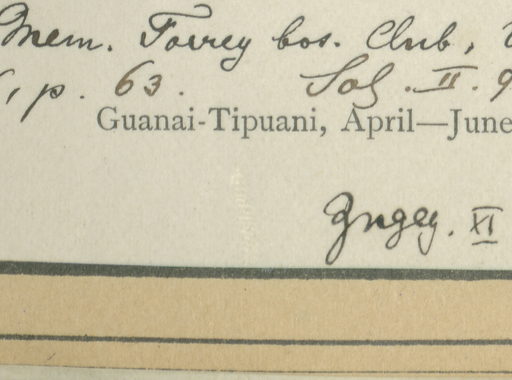 Mem. Torrey bot. Club,
p. 63. II. 9
Guanai-Tipuani, April—June
XI